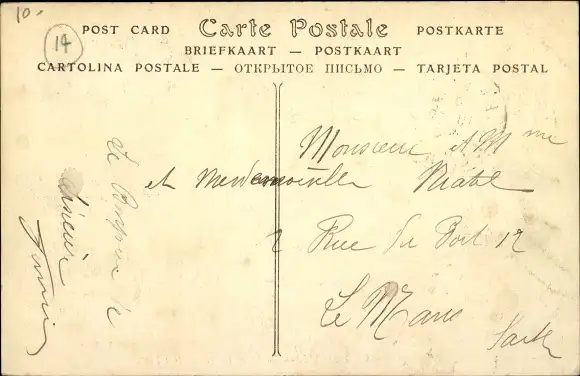 10.
14
POST CARD Carte Postale POSTKARTE
BRIEFKAART — POSTKAART
CARTOLINA POSTALE — ОТКРЫТОЕ ПИСЬМО — TARJETA POSTAL
Monsieur et Mme
et Mademoiselle
Rue du Port 12
Le Mans
Sarthe
Le Bonjour de